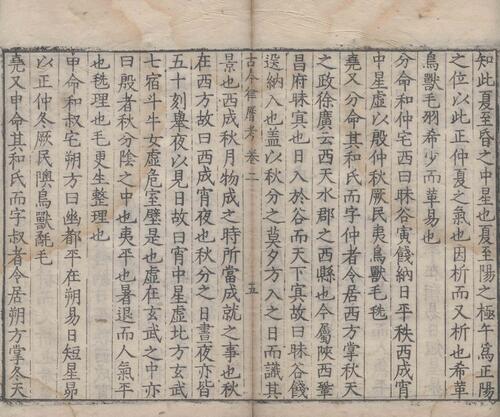 知此夏至昏之中星也夏至陽之極午為正陽
之位以此正仲夏之氣也因析而又析也希革
鳥獸毛羽希少而革易也
分命和仲宅西曰昧谷寅餞納日平秩西成宵
中星虛以殷仲秋厥民夷鳥獸毛毨
堯又分命其和氏而字仲者令居西方掌秋天
之政徐廣云西天水郡之西縣也今屬陝西鞏
昌府昧冥也日入於谷而天下冥故曰昧谷餞
送納入也盖以秋分之莫夕方入之日而識其
古今律曆考 卷二 五
景也西成秋月物成之時所當成就之事也秋
在西方故曰西成宵夜也秋分之日晝夜亦皆
五十刻舉夜以見日故曰宵中星虛北方玄武
七宿斗牛女虛危室壁是也虛在玄武之中亦
曰殷者秋分陰之中也夷平也暑退而人氣平
也毨理也毛更生整理也
申命和叔宅朔方曰幽都平在朔易日短星昴
以正仲冬厥民隩鳥獸氄毛
堯又申命其和氏而字叔者令居朔方掌冬天